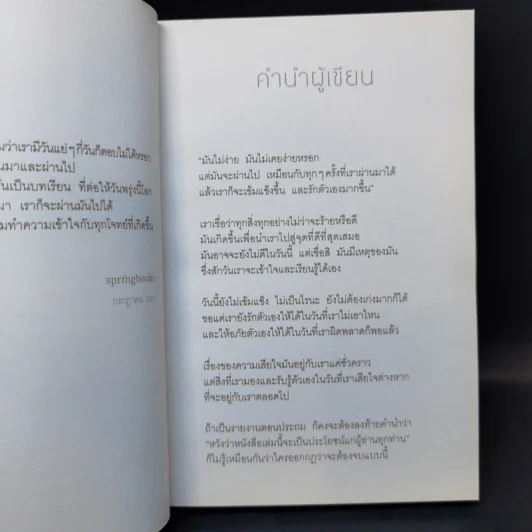 มว่าเรามีวันแย่ๆกี่วันก็ตอบไม่ได้หรอก
นมาและผ่านไป
ันเป็นบทเรียน ที่ต่อให้วันพรุ่งนี้โลก
มา เราก็จะผ่านมันไปได้
มทำความเข้าใจกับทุกโจทย์ที่เกิดขึ้น
springbooks
กรกฎาคม
คำนำผู้เขียน
"มันไม่ง่าย มันไม่เคยง่ายหรอก
แต่มันจะผ่านไป เหมือนกับทุกๆครั้งที่เราผ่านมาได้
แล้วเราก็จะเข้มแข็งขึ้น และรักตัวเองมากขึ้น"
เราเชื่อว่าทุกสิ่งทุกอย่างไม่ว่าจะร้ายหรือดี
มันเกิดขึ้นเพื่อนำเราไปสู่จุดที่ดีที่สุดเสมอ
มันอาจจะยังไม่ดีในวันนี้ แต่เชื่อสิ มันมีเหตุของมัน
ซึ่งสักวันเราจะเข้าใจและเรียนรู้ได้เอง
วันนี้ยังไม่เข้มแข็ง ไม่เป็นไรนะ ยังไม่ต้องเก่งมากก็ได้
ขอแค่เรายังรักตัวเองให้ได้ในวันที่เราไม่เอาไหน
และให้อภัยตัวเองให้ได้ในวันที่เราผิดพลาดก็พอแล้ว
เรื่องของความเสียใจมันอยู่กับเราแค่ชั่วคราว
แต่สิ่งที่เรามองและรับรู้ตัวเองในวันที่เราเสียใจต่างหาก
ที่จะอยู่กับเราตลอดไป
ถ้าเป็นรายงานตอนประถม ก็คงจะต้องลงท้ายคำนำว่า
"หวังว่าหนังสือเล่มนี้จะเป็นประโยชน์แก่ผู้อ่านทุกท่าน"
ก็ไม่รู้เหมือนกันว่าใครออกกฎว่าจะต้องจบแบบนี้